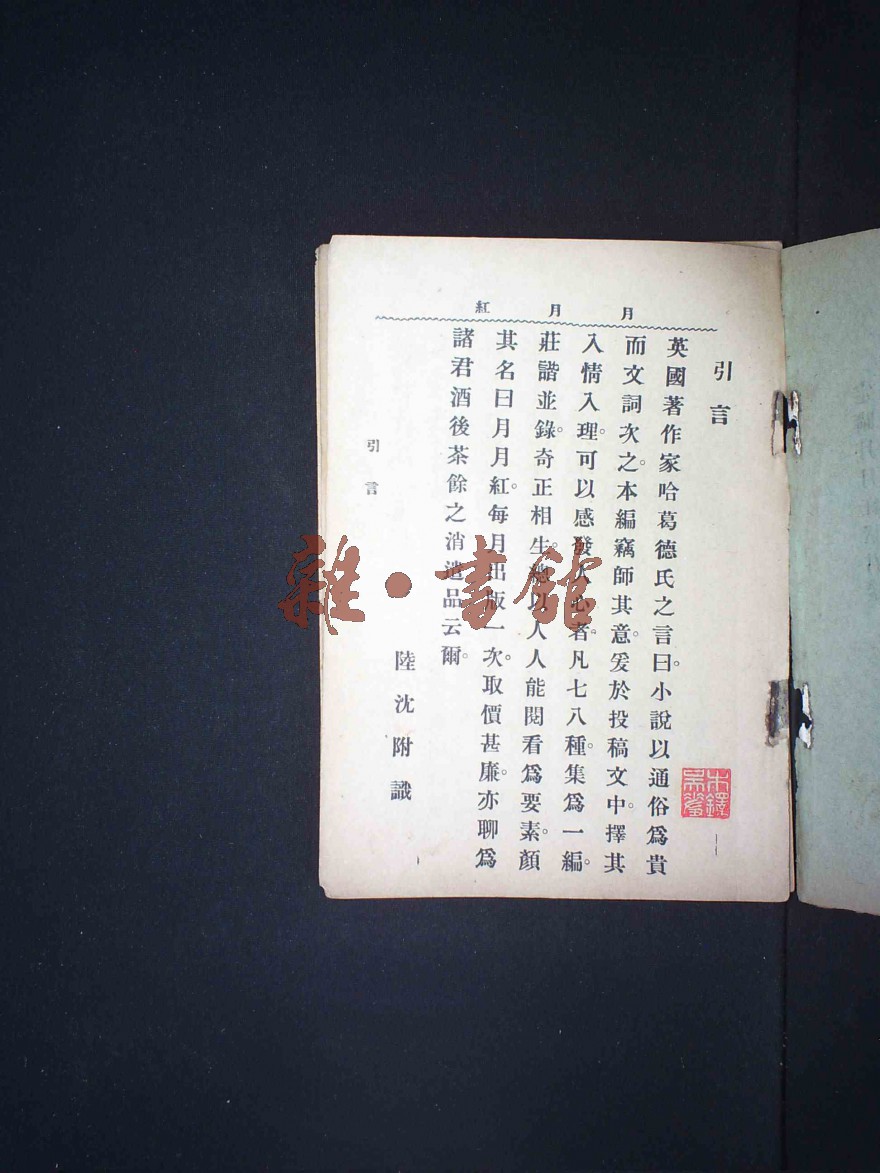 月月紅
引言
英國著作家哈葛德氏之言曰。小說以通俗爲貴
而文詞次之。本編竊師其意。爰於投稿文中。擇其
入情入理。可以感發人心者。凡七八種。集爲一編。
莊諧並錄。奇正相生。總以人人能閱看爲要素。顏
其名曰月月紅。每月出版一次。取價甚廉。亦聊爲
諸君酒後茶餘之消遣品云爾。
陸沈附識
引言
一
雜·書館